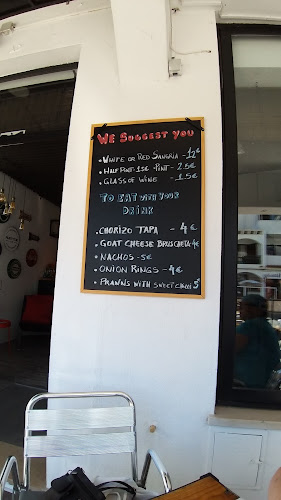 WE SUGGEST YOU
• WHITE OR RED SANGRIA - 12€
• HALF PINT - 1.5€ - PINT - 2.5€
• GLASS OF WINE - 1.5€
TO EAT WITH YOUR
DRINK
• CHORIZO TAPA - 4€
• GOAT CHEESE BRUSCHETA - 4€
• NACHOS - 5€
• ONION RINGS - 4€
• PRAWNS WITH SWEET CHILLI 5€